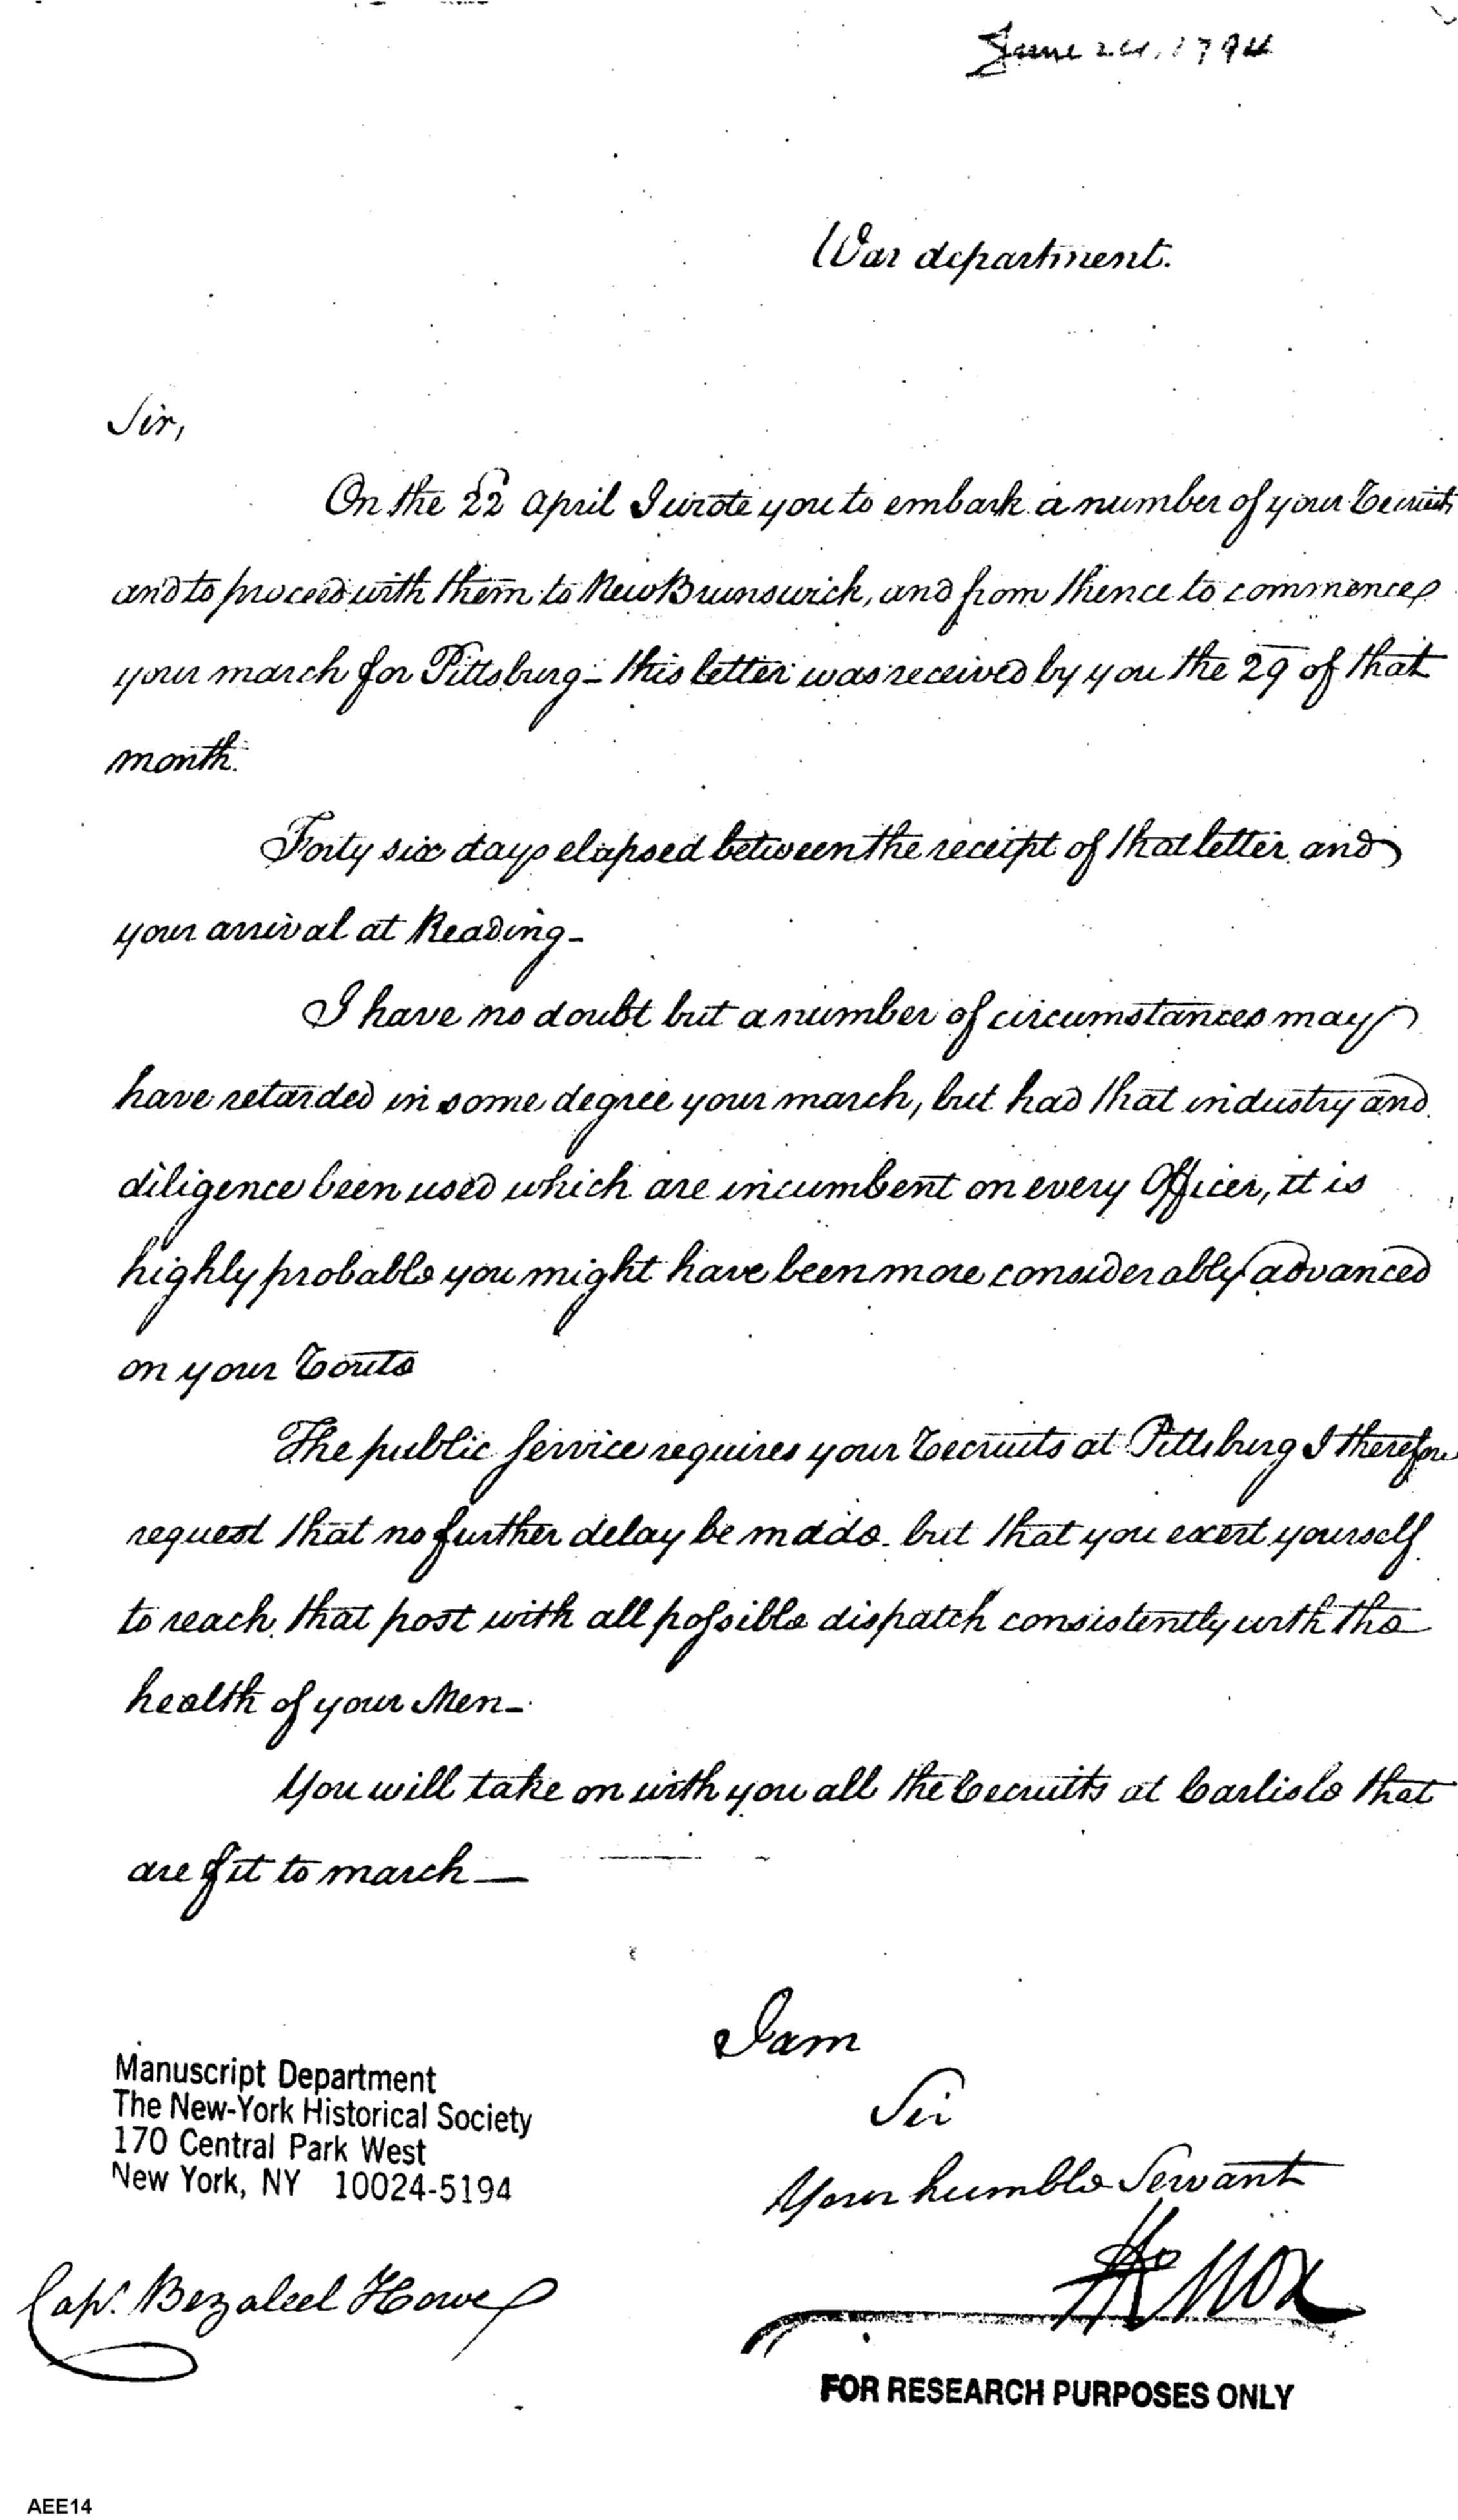 June 24, 1794
War department.
Sir,
On the 22 April I wrote you to embark a number of your Recruits
and to proceed with them to New Brunswick, and from thence to commence
your march for Pittsburg - this letter was received by you the 29 of that
month.
Forty six days elapsed between the receipt of that letter and
your arrival at Reading -
I have no doubt but a number of circumstances may
have retarded in some degree your march, but had that industry and
diligence been used which are incumbent on every Officer, it is
highly probable you might have been more considerably advanced
on your Route
The public Service requires your Recruits at Pittsburg I therefore
request that no further delay be made. but that you exert yourself
to reach that post with all possible dispatch consistently with the
health of your Men -
You will take on with you all the Recruits at Carlisle that
are fit to march —
I am
Sir
Your humble Servant
HKnox
Manuscript Department
The New-York Historical Society
170 Central Park West
New York, NY 10024-5194
Capt. Bezaleel Howe
FOR RESEARCH PURPOSES ONLY
AEE14